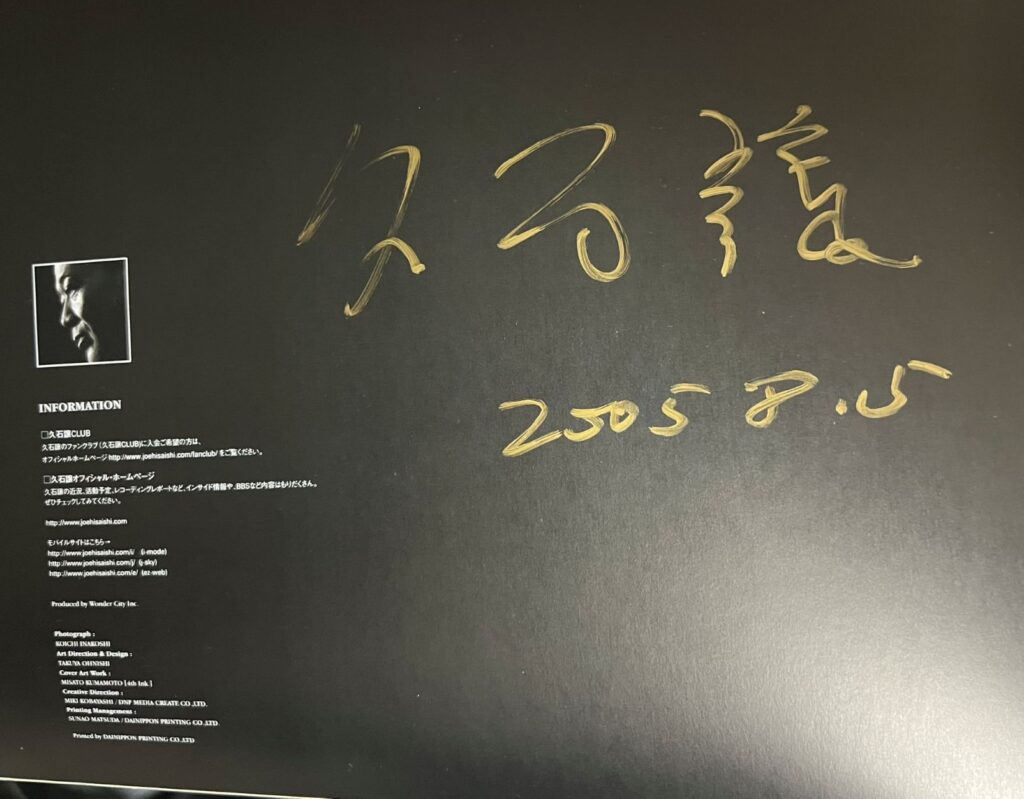 久石譲
2005 8.5
INFORMATION
□久石譲CLUB
久石譲のファンクラブ(久石譲CLUB)に入会ご希望の方は、
オフィシャルホームページhttp://www.joehisaishi.com/fanclub/をご覧ください。
□久石譲オフィシャル・ホームページ
久石譲の近況、活動予定、レコーディングレポートなど、インサイド情報や、BBSなど内容はもりだくさん。
ぜひチェックしてみてください。
http://www.joehisaishi.com
モバイルサイトはこちら→
http://www.joehisaishi.com/i/ (i-mode)
http://www.joehisaishi.com/j/ (j-sky)
http://www.joehisaishi.com/e/ (ez-web)
Produced by Wonder City Inc.
Photograph :
KOICHI INAKOSHI
Art Direction & Design :
TAKUYA OHNISHI
Cover Art Work :
MISATO KUMAMOTO [4th Ink.]
Creative Direction :
MIKI KOBAYASHI / DNP MEDIA CREATE CO.,LTD.
Printing Management :
SUNAO MATSUDA / DAINIPPON PRINTING CO.,LTD.
Printed by DAINIPPON PRINTING CO.,LTD